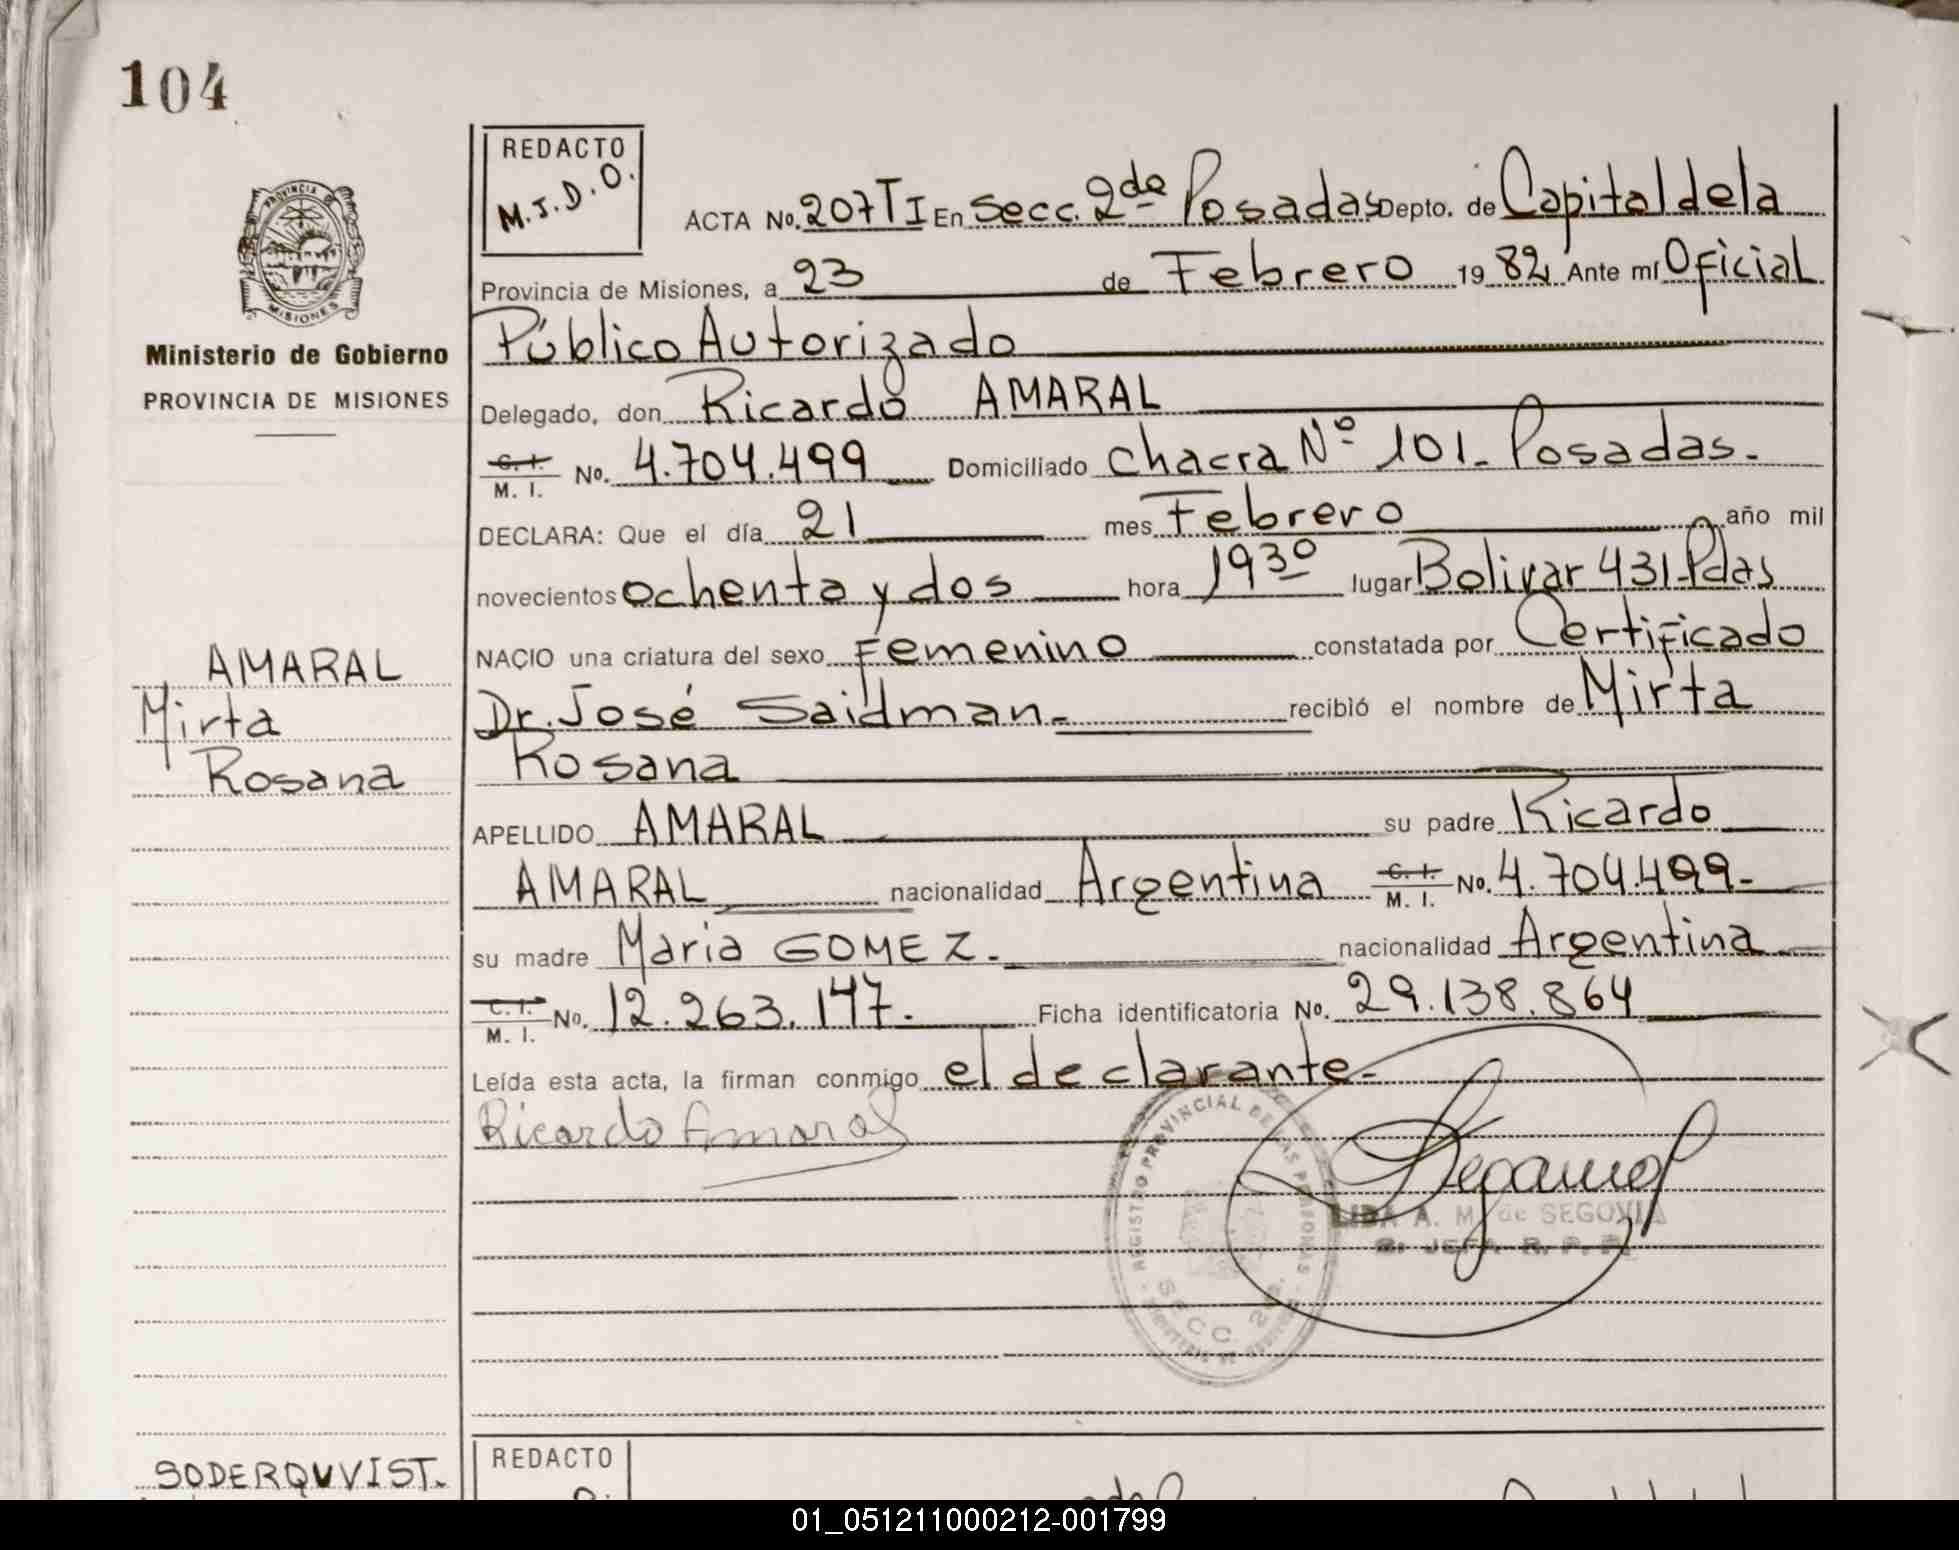 104
REDACTO
M.J.D.O.
ACTA No. 207 TI En Secc. 2da Posadas Depto. de Capital de la
Provincia de Misiones, a 23 de Febrero 1982, Ante mí Oficial
Público Autorizado
Delegado, don Ricardo AMARAL
C. I. M. I. No. 4.704.499 Domiciliado Chacra Nº 101- Posadas.-
DECLARA: Que el día 21 mes Febrero año mil
novecientos ochenta y dos hora 19³⁰ lugar Bolivar 431-Pdas
NACIO una criatura del sexo Femenino constatada por Certificado
Dr. José Saidman.- recibió el nombre de Mirta
Rosana
APELLIDO AMARAL su padre Ricardo
AMARAL nacionalidad Argentina C. I. M. I. No. 4.704.499-
su madre Maria GOMEZ.- nacionalidad Argentina
C. I. M. I. No. 12.263.147.- Ficha identificatoria No. 29.138.864
Leída esta acta, la firman conmigo el declarante.-
Ricardo Amaral
LIDA A. M. de SEGOVIA
JEFA R. P. P.
REGISTRO PROVINCIAL DE LAS PERSONAS
SECC. 2da.
PROVINCIA DE
MISIONES
Ministerio de Gobierno
PROVINCIA DE MISIONES
AMARAL
Mirta
Rosana
SODERQUVIST.
REDACTO
01_051211000212-001799